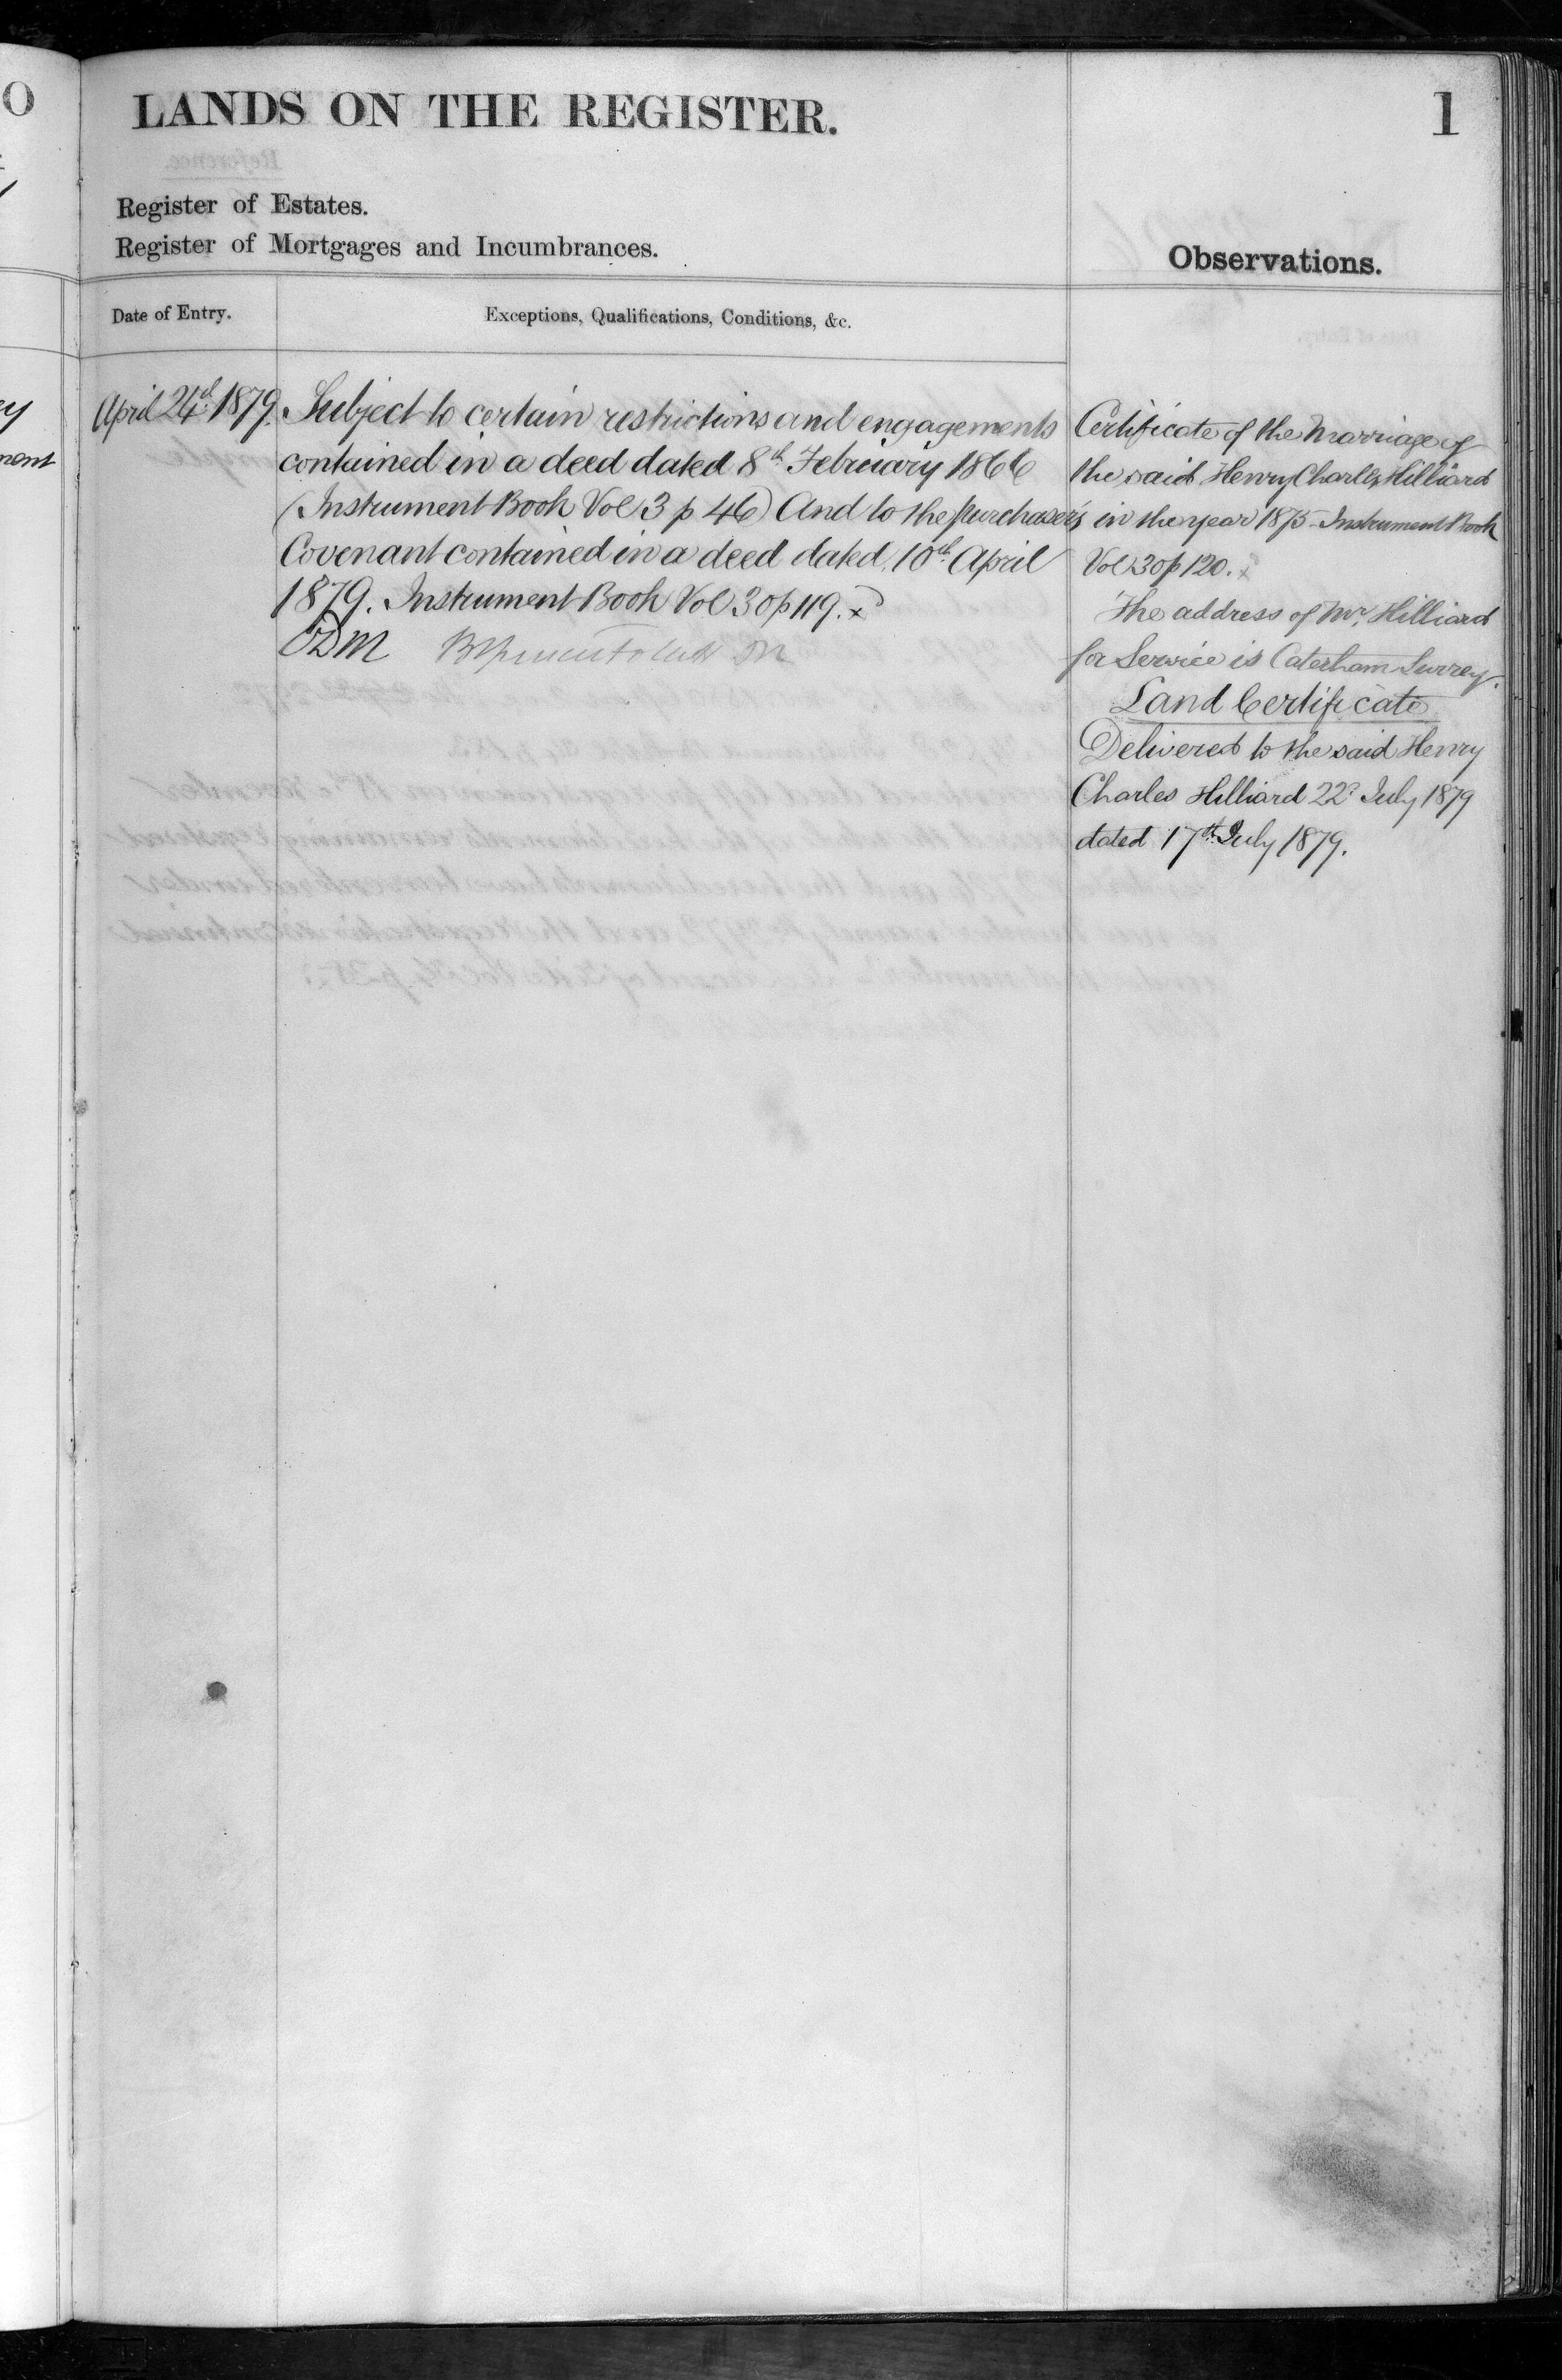 LANDS ON THE REGISTER.
1
Register of Estates.
Register of Mortgages and Incumbrances.
Observations.
Date of Entry.
Exceptions, Qualifications, Conditions, &c.
April 24th 1879. Subject to certain restrictions and engagements
contained in a deed dated 8th February 1866
(Instrument Book Vol 3 p 46) And to the purchaser's
Covenant contained in a deed dated 10th April
1879. Instrument Book Vol 30 p 119. x
Certificate of the Marriage of
the said Henry Charles Hilliard
in the year 1875 Instrument Book
Vol 30 p 120. x
The address of Mr. Hilliard
for Service is Caterham Surrey.
Land Certificate
Delivered to the said Henry
Charles Hilliard 22d July 1879
dated 17th July 1879.